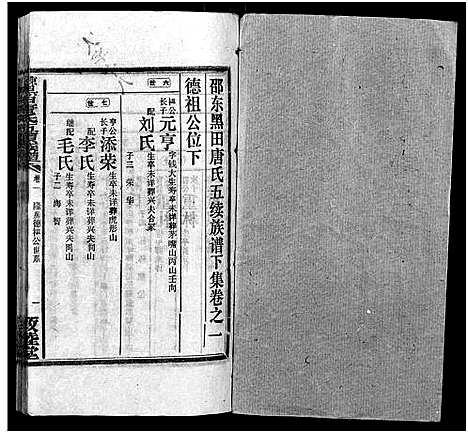 邵东黑田唐氏五续族谱下集卷之一
德祖公位下
六世
祖公长子 元亨 字钱大生寿卒未详葬茅嘴山丙山壬向
配 刘氏 生寿卒未详葬兴夫合冢
子二 荣 华
七世
亨公长子 添荣 生卒未详葬虎形山
配 李氏 生寿卒未详葬兴夫同山
继配 毛氏 生寿卒未详葬兴夫同山
子二 海 智
卷一 隆房德祖公世系
一